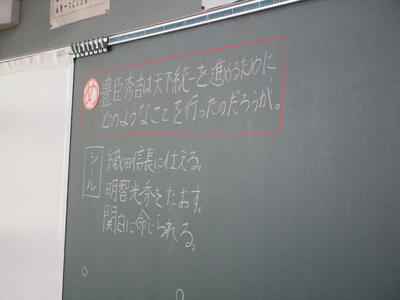 め 豊臣秀吉は天下統一を進めるために、
どのようなことを行ったのだろうか。
シール
織田信長に仕える。
明智光秀をたおす。
関白に命じられる。